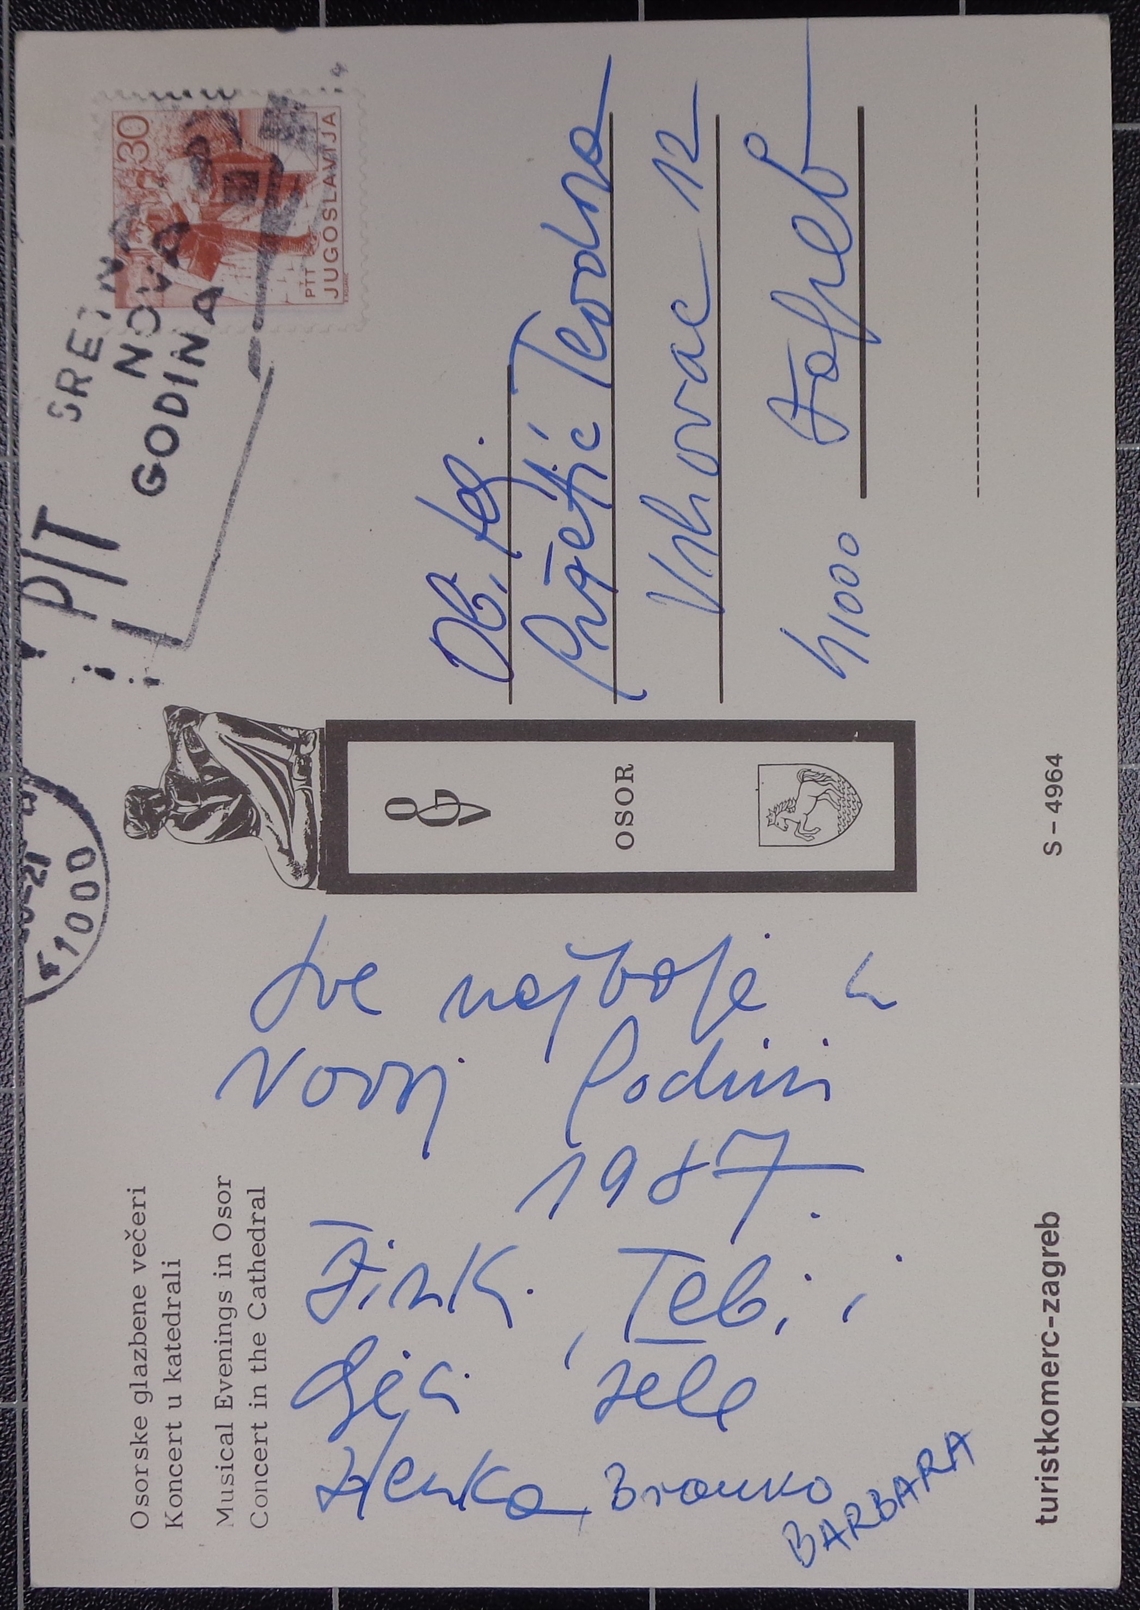 Osorske glazbene večeri
Koncert u katedrali
Musical Evenings in Osor
Concert in the Cathedral
Sve najbolje u
Novoj Godini
1987.
Žinki, Tebi i
djeci žele
Zdenka Branko
BARBARA
turistkomerc-zagreb
OGV
OSOR
S-4964
41000
PTT
SRETNA
NOVA
GODINA
30
PTT
JUGOSLAVIJA
Ob. 
Teodora
Vrhovac 12
41000 Zagreb